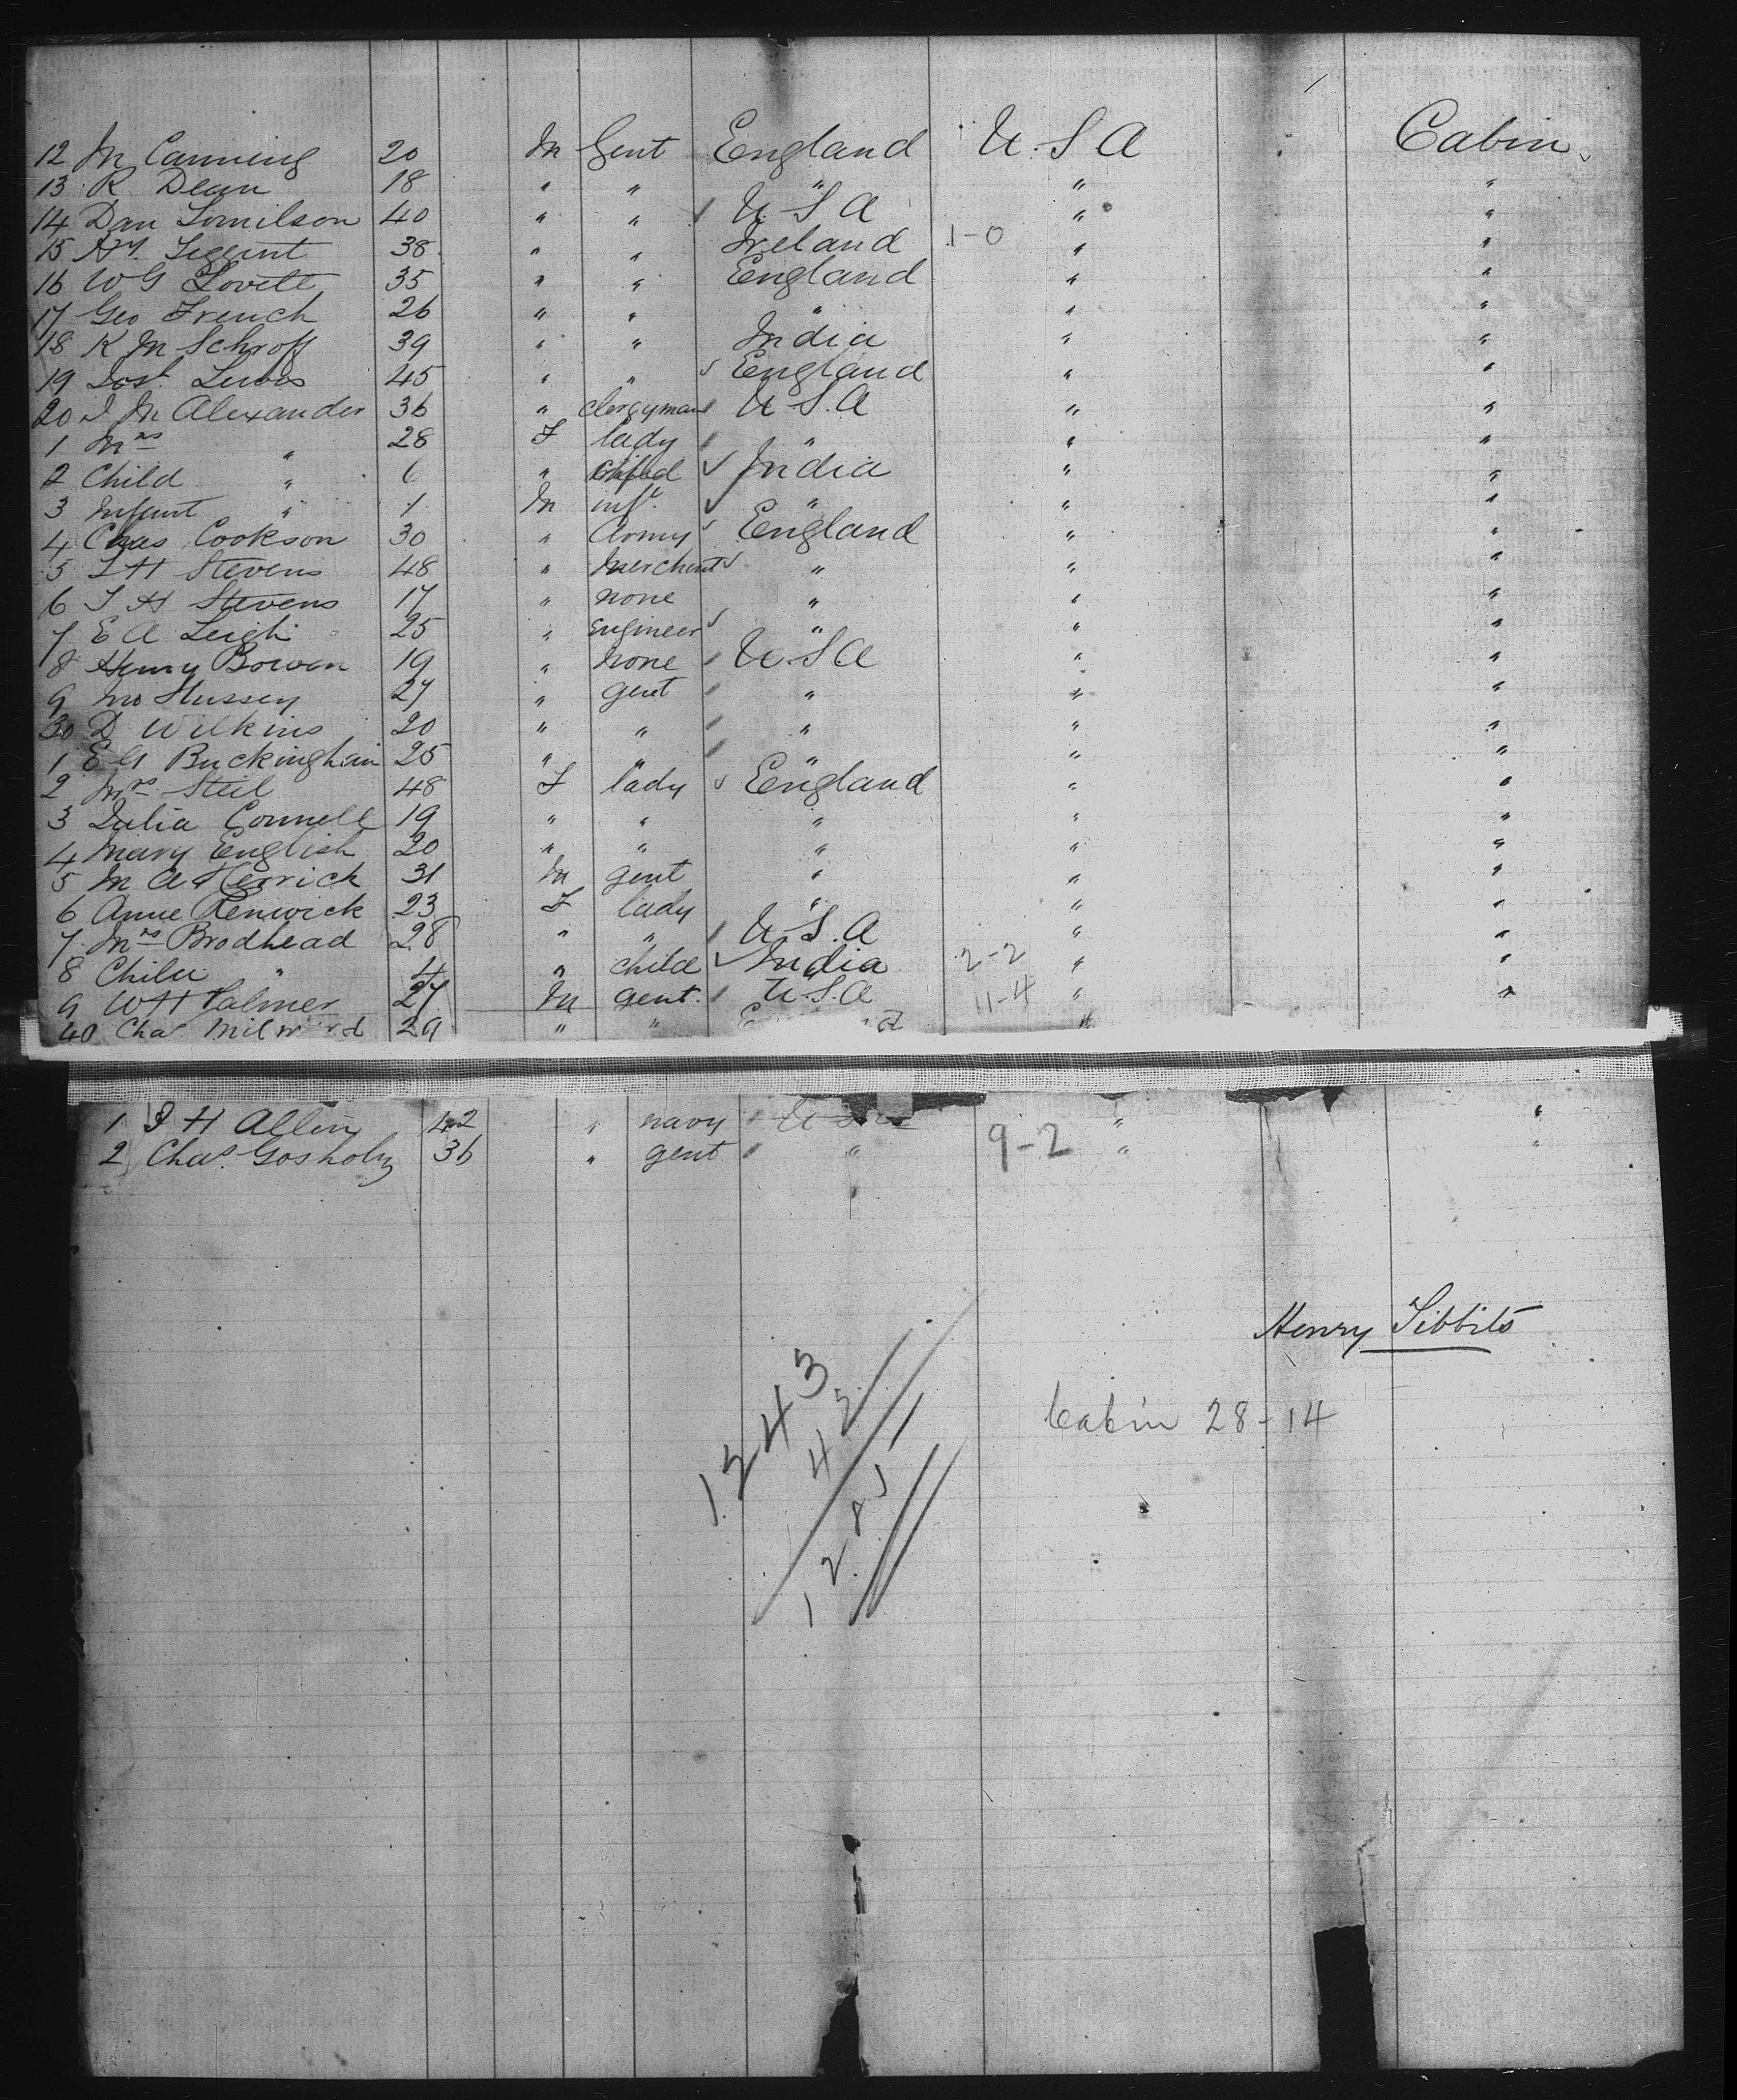 12 M Canning 20 M Gent England U.S.A Cabin
13 R Dean 18 " " " " "
14 Dan Tomilson 40 " " U.S.A " "
15 38 " " Ireland 1-0 " "
16 W G Lovett 35 " " England " "
17 Geo French 26 " " " " "
18 K M Schroff 39 " " India " "
19 Lewis 45 " " England " "
20 J M Alexander 36 " clergyman U.S.A " "
1 Mrs " 28 F lady " " "
2 Child " 6 " child India " "
3 Infant " 1 M inft. " " "
4 Chas Cookson 30 " Army England " "
5 H Stevens 48 " Merchant " " "
6 H Stevens 17 " none " " "
7 E A Leigh 25 " Engineer " " "
8 Henry Bowen 19 " none U.S.A " "
9 Jno Hussey 27 " gent " " "
30 D Wilkins 20 " " " " "
1 E A Buckingham 25 " " " " "
2 Mrs Steil 48 F lady England " "
3 Julia Connell 19 " " " " "
4 Mary English 20 " " " " "
5 M A Herrick 31 M gent " " "
6 Anne Renwick 23 F lady " " "
7 Mrs Brodhead 28 " " U.S.A " "
8 Child " 4 " child India 2-2 " "
9 W H Palmer 27 M gent. U.S.A 11-4 " "
40 Chas 29 " " "
1 H Allen 42 " navy " "
2 Chas. 36 " gent " 9-2 " "
Henry Tibbits
Cabin 28-14
1243
42
1285